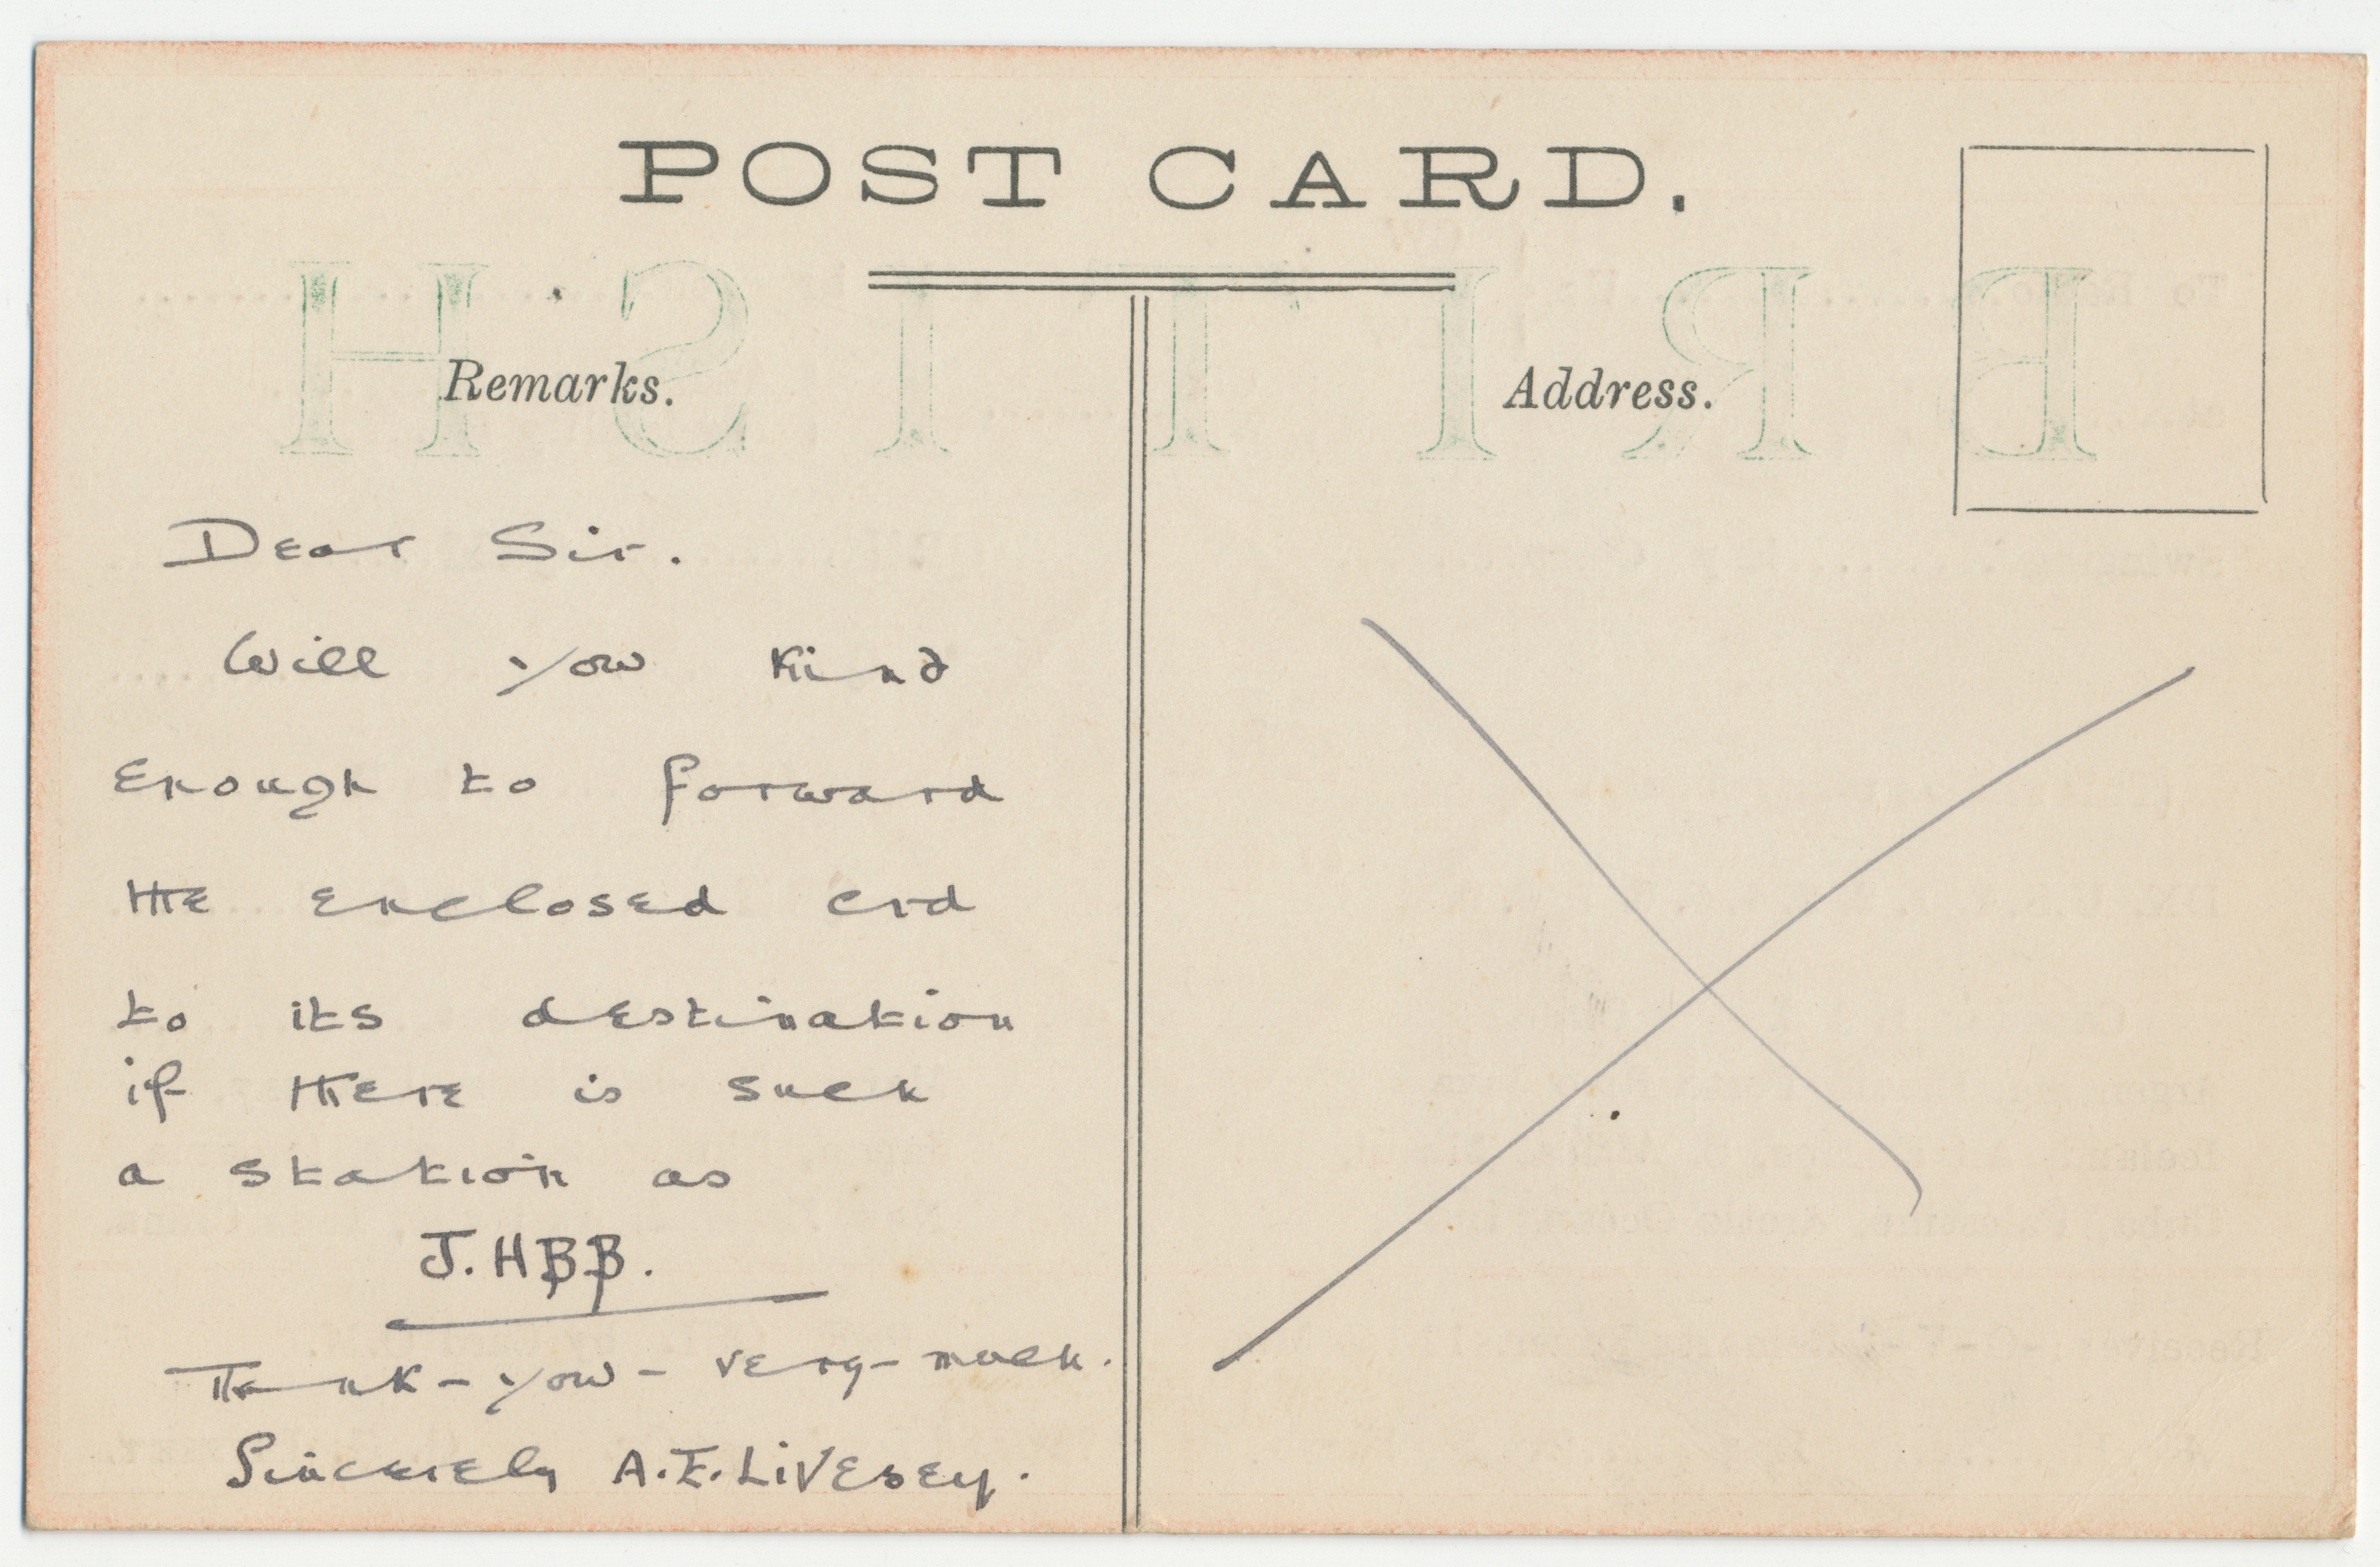 POST CARD.
Remarks.
Address.
Dear Sir.
Will you kind
enough to forward
the enclosed crd
to its destination
if there is such
a station as
J.HBB.
Thank-you-very-much.
Sincerely A.E.Livesey.
BRITISH